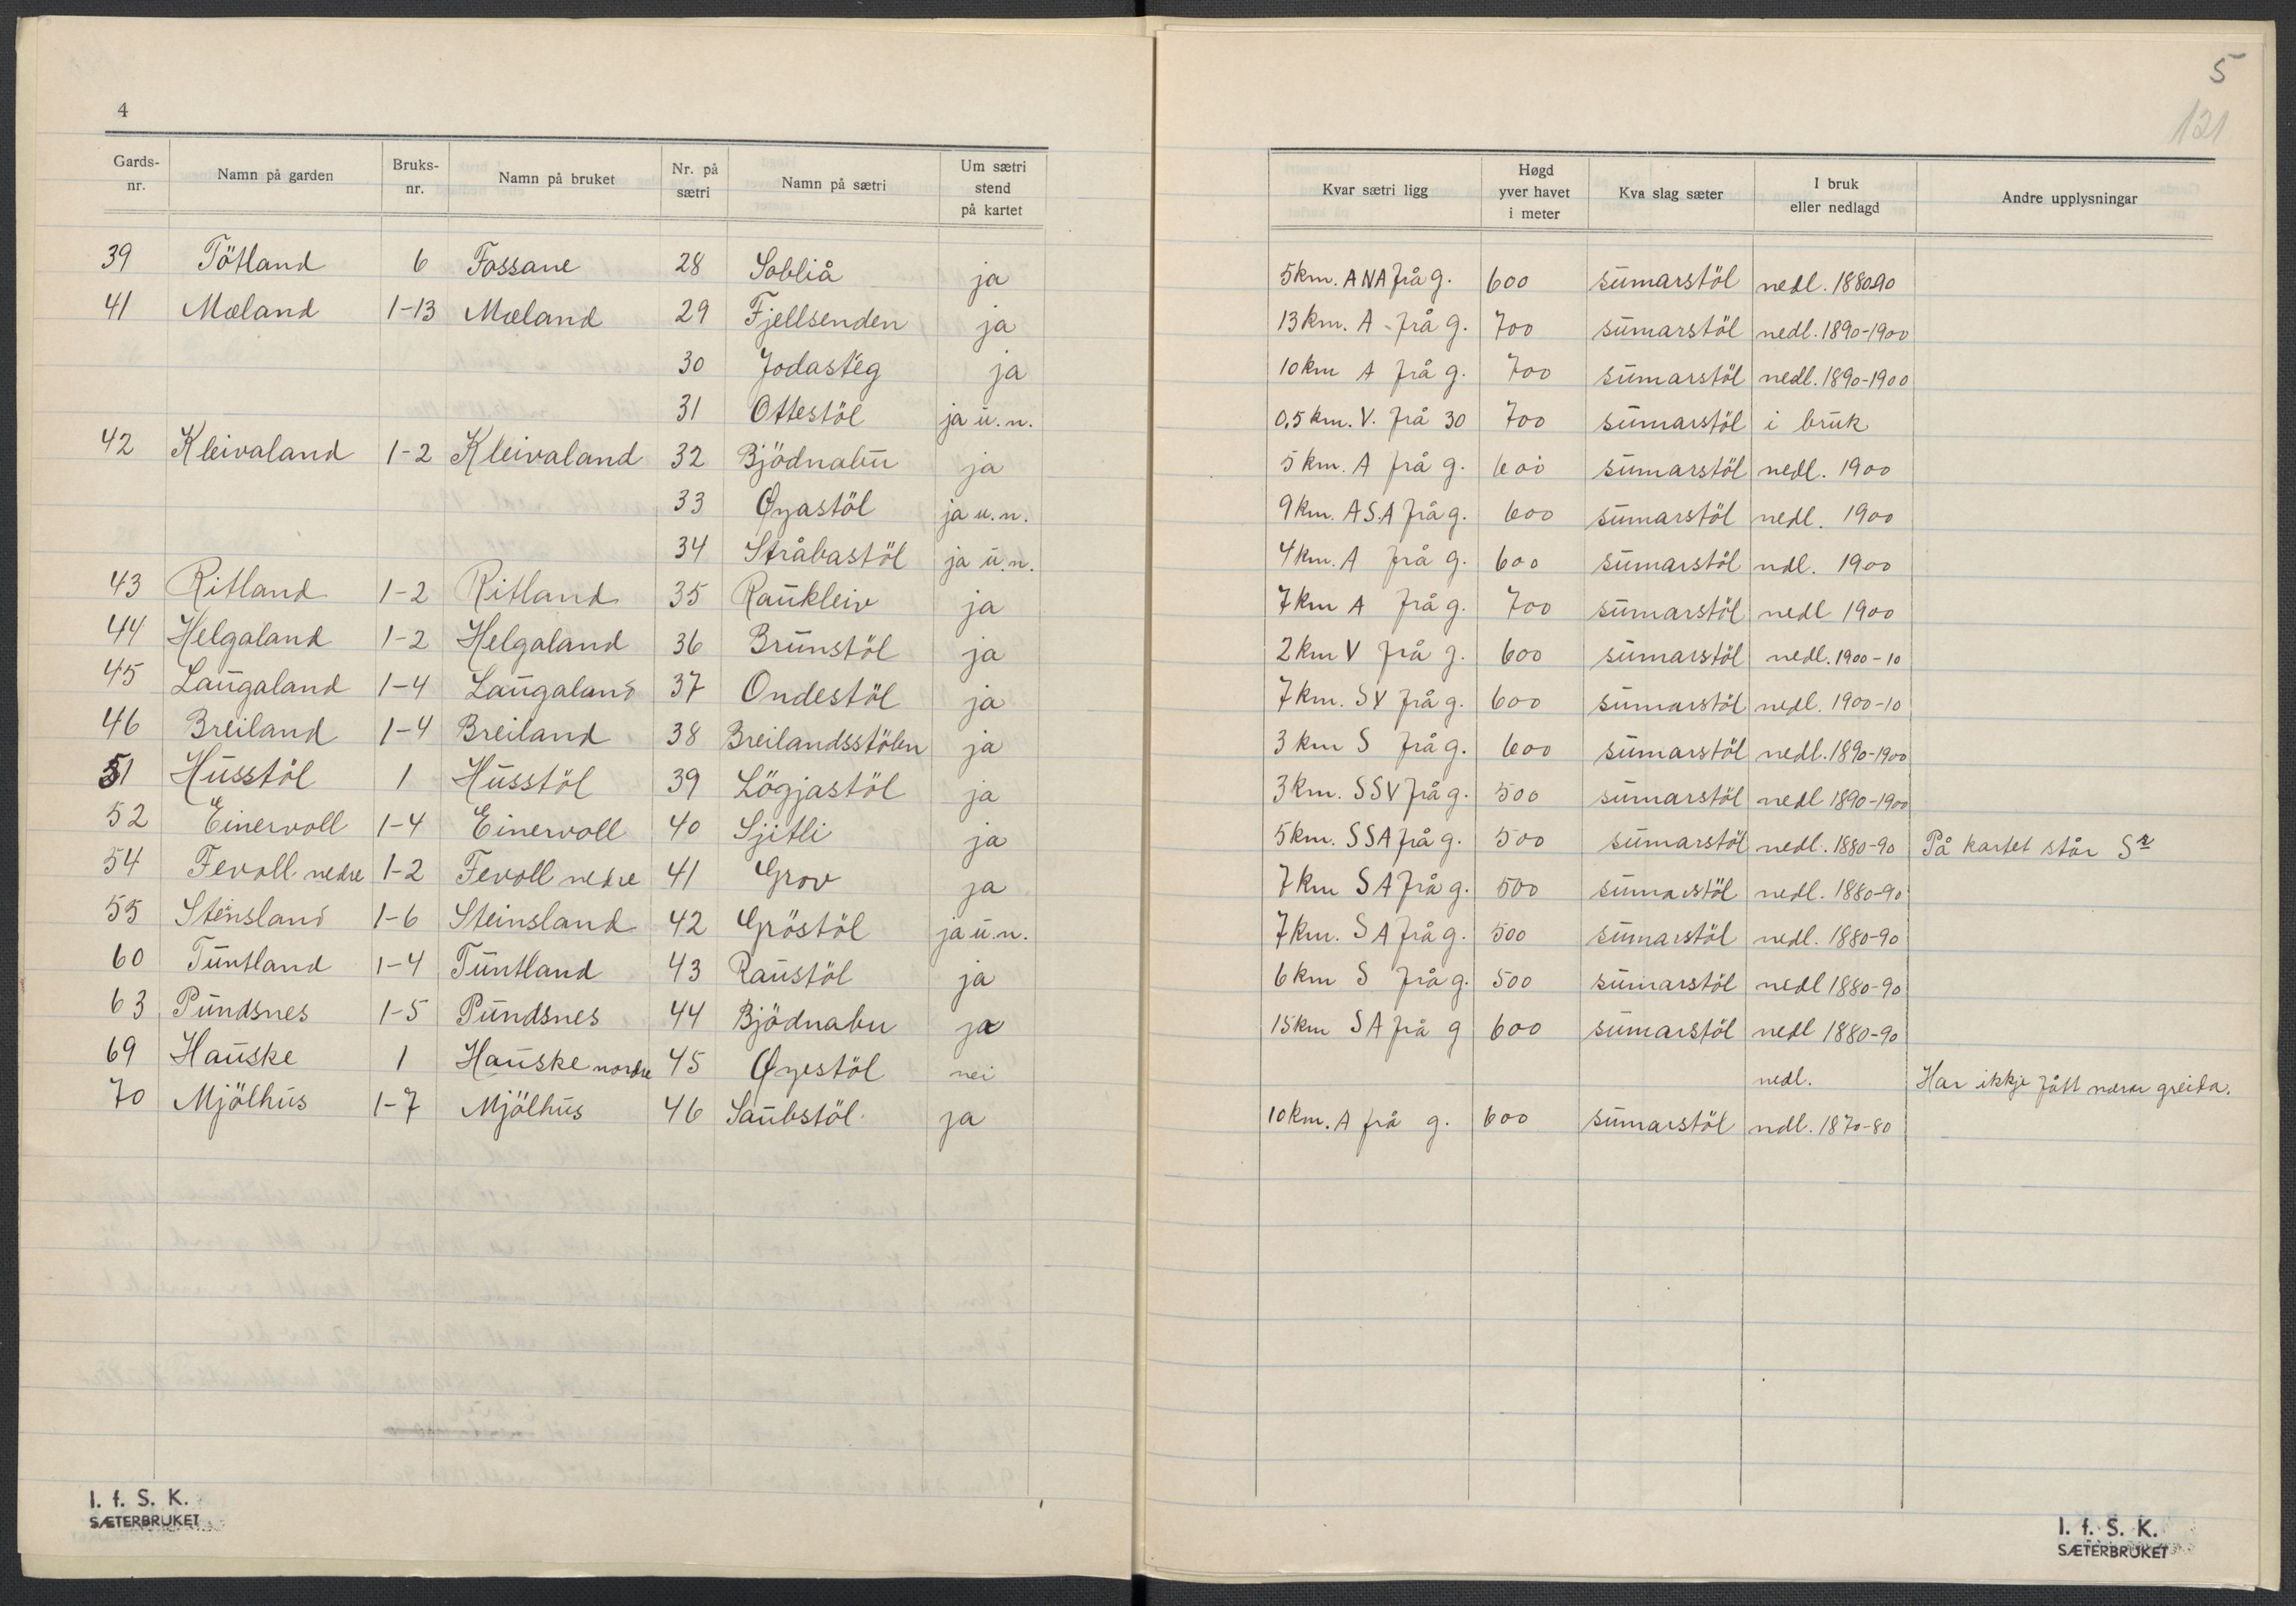 4
5
121
Gards-nr. | Namn på garden | Bruks-nr. | Namn på bruket | Nr. på sætri | Namn på sætri | Um sætri stend på kartet | Kvar sætri ligg | Høgd yver havet i meter | Kva slag sæter | I bruk eller nedlagd | Andre upplysningar
39 Tötland 6 Fossane 28 Sobliå ja 5km. ANA frå g. 600 sumarstöl nedl. 1880-90
41 Mæland 1-13 Mæland 29 Fjellsenden ja 13km. A frå g. 700 sumarstöl nedl. 1890-1900
30 Jodasteg ja 10km A frå g. 700 sumarstöl nedl. 1890-1900
31 Ottestöl ja u.n. 0,5 km. V. frå 30 700 sumarstöl i bruk
42 Kleivaland 1-2 Kleivaland 32 Bjödnabu ja 5 km. A frå g. 600 sumarstöl nedl. 1900
33 Øyastöl ja u.n. 9km. ASA frå g. 600 sumarstöl nedl. 1900
34 Stråbastöl ja u.n. 4km. A frå g. 600 sumarstöl ndl. 1900
43 Ritland 1-2 Ritland 35 Raukleiv ja 7km A frå g. 700 sumarstöl nedl 1900
44 Helgaland 1-2 Helgaland 36 Brunstöl ja 2km V frå g. 600 sumarstöl nedl. 1900-10
45 Laugaland 1-4 Laugaland 37 Ondestöl ja 7km. SV frå g. 600 sumarstöl nedl. 1900-10
46 Breiland 1-4 Breiland 38 Breilandsstölen ja 3 km S frå g. 600 sumarstöl nedl. 1890-1900
51 Husstöl 1 Husstöl 39 Lögjastöl ja 3km. SSV frå g. 500 sumarstöl nedl 1890-1900
52 Einervoll 1-4 Einervoll 40 Sjitli ja 5km. SSA frå g. 500 sumarstöl nedl. 1880-90 På kartet står Sr
54 Fevoll nedre 1-2 Fevoll nedre 41 Grov ja 7km SA frå g. 500 sumarstöl nedl. 1880-90
55 Steinsland 1-6 Steinsland 42 Gröstöl ja u.n. 7km. SA frå g. 500 sumarstöl nedl. 1880-90
60 Tuntland 1-4 Tuntland 43 Raustöl ja 6km S frå g. 500 sumarstöl nedl 1880-90
63 Pundsnes 1-5 Pundsnes 44 Bjödnabu ja 15km SA frå g 600 sumarstöl nedl 1880-90
69 Hauske 1 Hauske nordre 45 Øyestöl nei nedl. Har ikkje fått nærare greida.
70 Mjölhus 1-7 Mjölhus 46 Saubstöl ja 10km. A frå g. 600 sumarstöl ndl. 1870-80
I. f. S. K.
SÆTERBRUKET
I. f. S. K.
SÆTERBRUKET